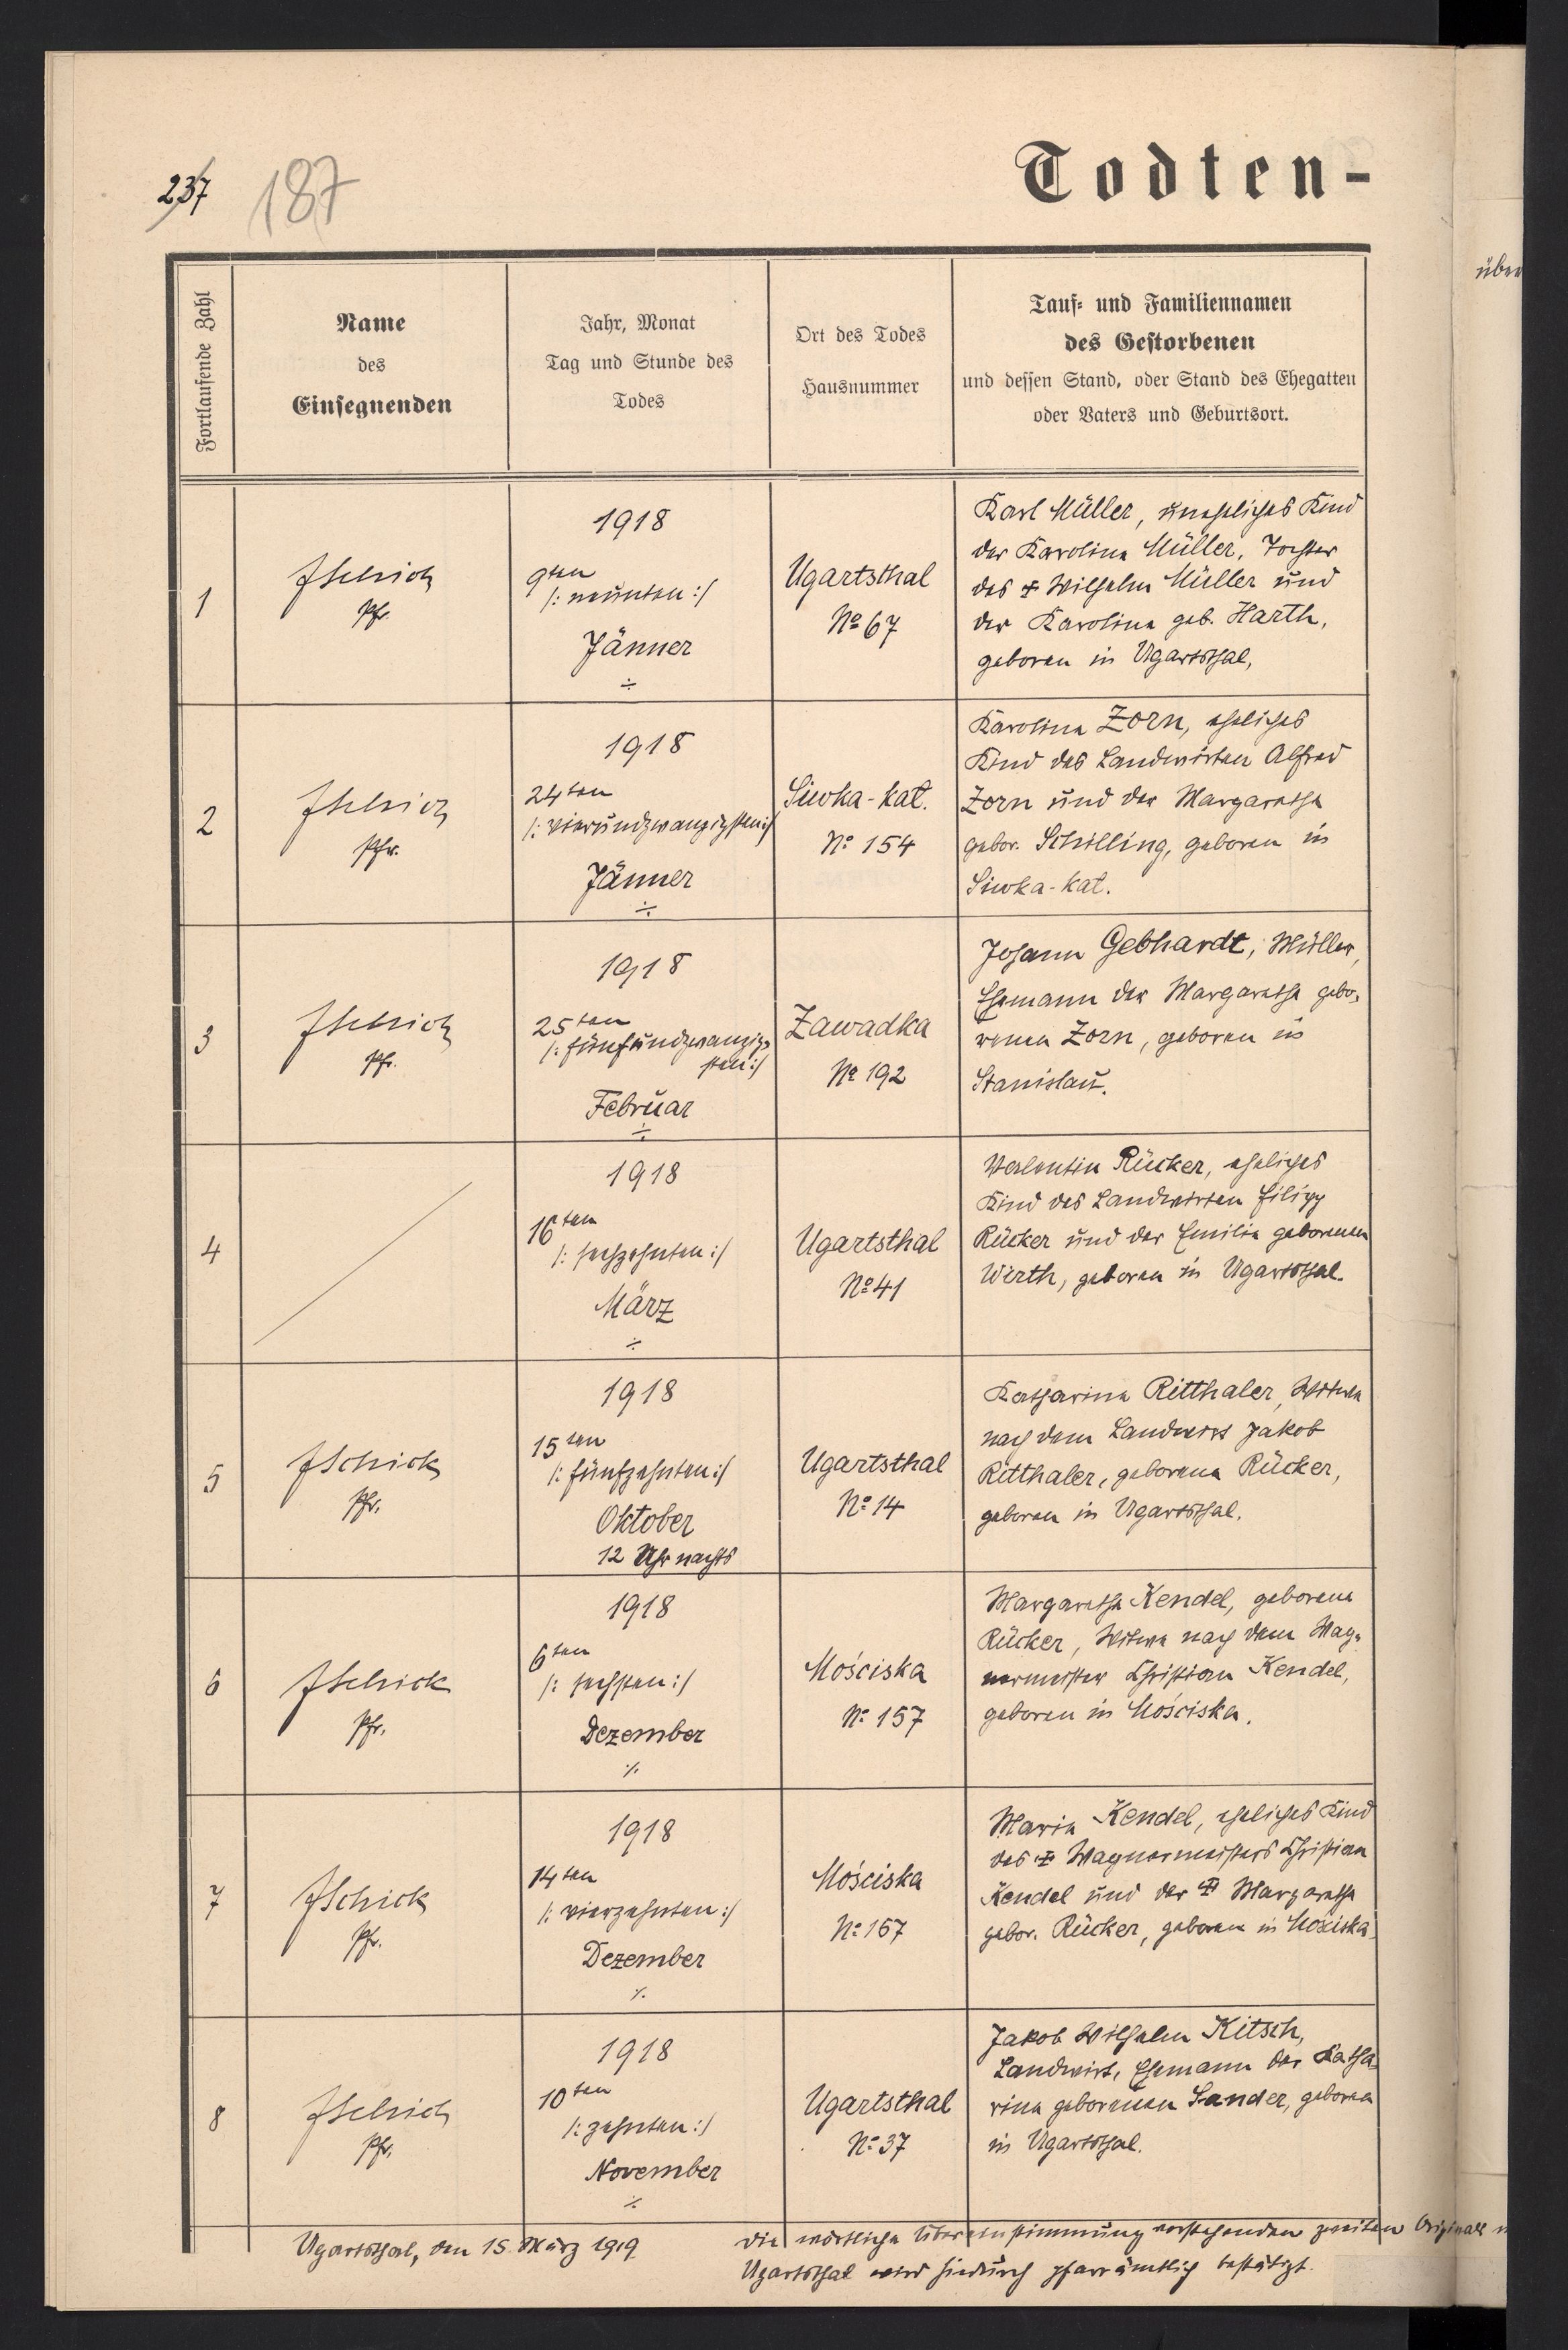 237 187
Todten-
über
Fortlaufende Zahl
Name
des
Einsegnenden
Jahr, Monat
Tag und Stunde des
Todes
Ort des Todes
Hausnummer
Tauf- und Familiennamen
des Gestorbenen
und dessen Stand, oder Stand des Ehegatten
oder Vaters und Geburtsort.
1
JSchick
Pfr.
1918
9ten
/: neunten :/
Jänner
÷
Ugartsthal
No 67
Karl Müller, uneheliches Kind
der Karolina Müller, Tochter
des ‡ Wilhelm Müller und
der Karolina geb. Harth,
geboren in Ugartsthal,
2
JSchick
Pfr.
1918
24ten
/: vierundzwanzigsten :/
Jänner
÷
Siwka-kał.
No 154
Karolina Zorn, eheliches
Kind des Landwirten Alfred
Zorn und der Margaretha
gebor. Schilling, geboren in
Siwka-kał.
3
JSchick
Pfr.
1918
25ten
/: fünfundzwanzig-
sten :/
Februar
÷
Zawadka
No 192
Johann Gebhardt, Müller,
Ehemann der Margaretha gebo-
renen Zorn, geboren in
Stanislau.
4
1918
16ten
/: sechzehnten :/
März
÷
Ugartsthal
No 41
Valentin Rücker, eheliches
Kind des Landwirten Filipp
Rücker und der Emilia geborenen
Wirth, geboren in Ugartsthal.
5
JSchick
Pfr.
1918
15ten
/: fünfzehnten :/
Oktober
12 Uhr nachts
Ugartsthal
No 14
Katharina Ritthaler, Witwe
nach dem Landwirt Jakob
Ritthaler, geborene Rücker,
geboren in Ugartsthal.
6
JSchick
Pfr.
1918
6ten
/: sechsten :/
Dezember
%
Mościska
No 157
Margaretha Kendel, geborene
Rücker, Witwe nach dem Wag-
nermeister Christian Kendel,
geboren in Mościska.
7
JSchick
Pfr.
1918
14ten
/: vierzehnten :/
Dezember
%
Mościska
No 157
Maria Kendel, eheliches Kind
des ‡ Wagnermeisters Christian
Kendel und der ‡ Margaretha
gebor. Rücker, geboren in Mościska
8
JSchick
Pfr.
1918
10ten
/: zehnten :/
November
%
Ugartsthal
No 37
Jakob Wilhelm Kitsch,
Landwirt, Ehemann der Katha-
rina geborenen Sander, geboren
in Ugartsthal.
Ugartsthal, den 15. März 1919
Die wörtliche Übereinstimmung vorstehenden zweiten Originals
Ugartsthal wird hiedurch pfarrämtlich bestätigt.